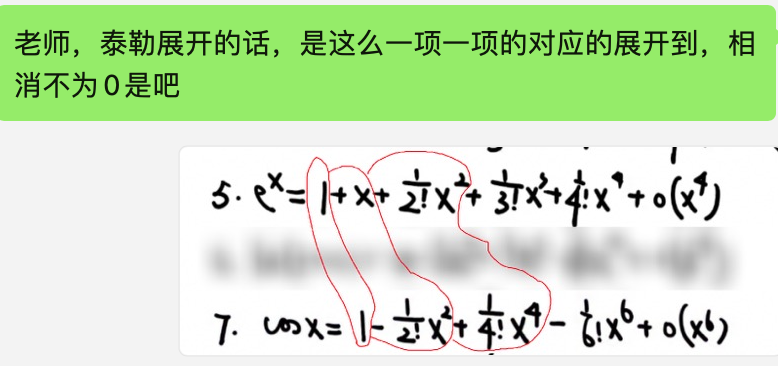 老师，泰勒展开的话，是这么一项一项的对应的展开到，相
消不为0是吧
5. eˣ= 1+x+ 1/2! x²+ 1/3! x³+ 1/4! x⁴+o(x⁴)
7. cosx= 1- 1/2! x²+ 1/4! x⁴- 1/6! x⁶+o(x⁶)